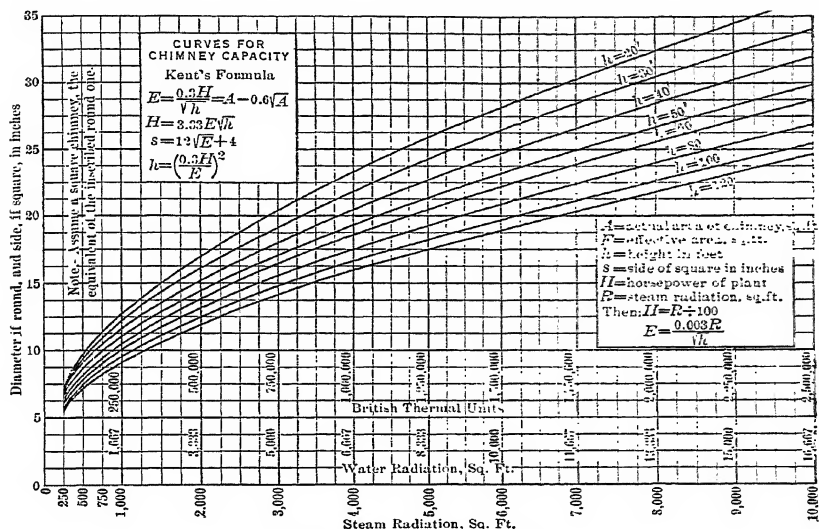 CURVES FOR
CHIMNEY CAPACITY
Kent's Formula
E=0.3H/√h=A−0.6√A
H=3.33E√h
s=12√E+4
h=(0.3H/E)²
Note.- Assume a square chimney, the
equivalent of the inscribed round one.
Diameter if round, and side, if square, in inches
35
30
25
20
15
10
5
0
h=20'
h=30'
h=40'
h=50'
h=60
h=80
h=100
h=120'
A=actual area of chimney, sq.ft.
E=effective area, sq.ft.
h=height in feet
s=side of square in inches
H=horsepower of plant
R=steam radiation, sq.ft.
Then: H=R÷100
E=0.003R/√h
250,000
500,000
750,000
1,000,000
1,250,000
1,500,000
1,750,000
2,000,000
2,250,000
2,500,000
British Thermal Units
1,667
3,333
5,000
6,667
8,333
10,000
11,667
13,333
15,000
16,667
Water Radiation, Sq. Ft.
0
250
500
750
1,000
2,000
3,000
4,000
5,000
6,000
7,000
8,000
9,000
10,000
Steam Radiation, Sq. Ft.